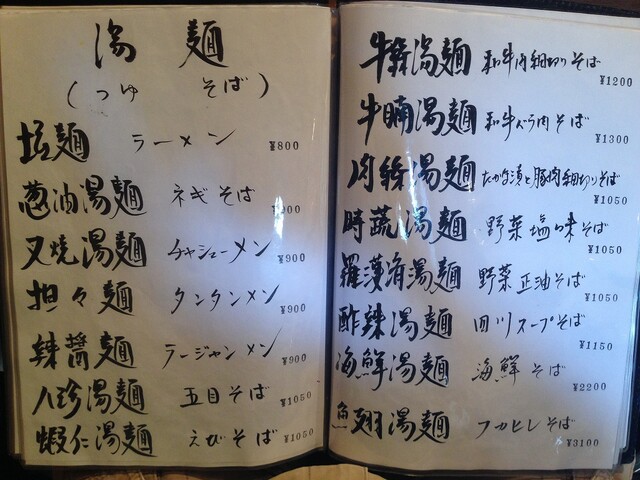 湯麺
(つゆそば)
拉麺 ラーメン ¥800
葱油湯麺 ネギそば
叉焼湯麺 チャシューメン ¥900
担々麺 タンタンメン ¥900
辣醤麺 ラージャンメン ¥900
八珍湯麺 五目そば ¥1050
蝦仁湯麺 えびそば ¥1050
湯麺 和牛肉細切りそば ¥1200
牛腩湯麺 和牛バラ肉そば ¥1300
肉絲湯麺 たかな漬と豚肉細切りそば ¥1050
時蔬湯麺 野菜塩味そば ¥1050
羅漢湯麺 野菜正油そば ¥1050
酢辣湯麺 四川スープそば ¥1150
海鮮湯麺 海鮮そば ¥2200
魚翅湯麺 フカヒレそば ¥3100